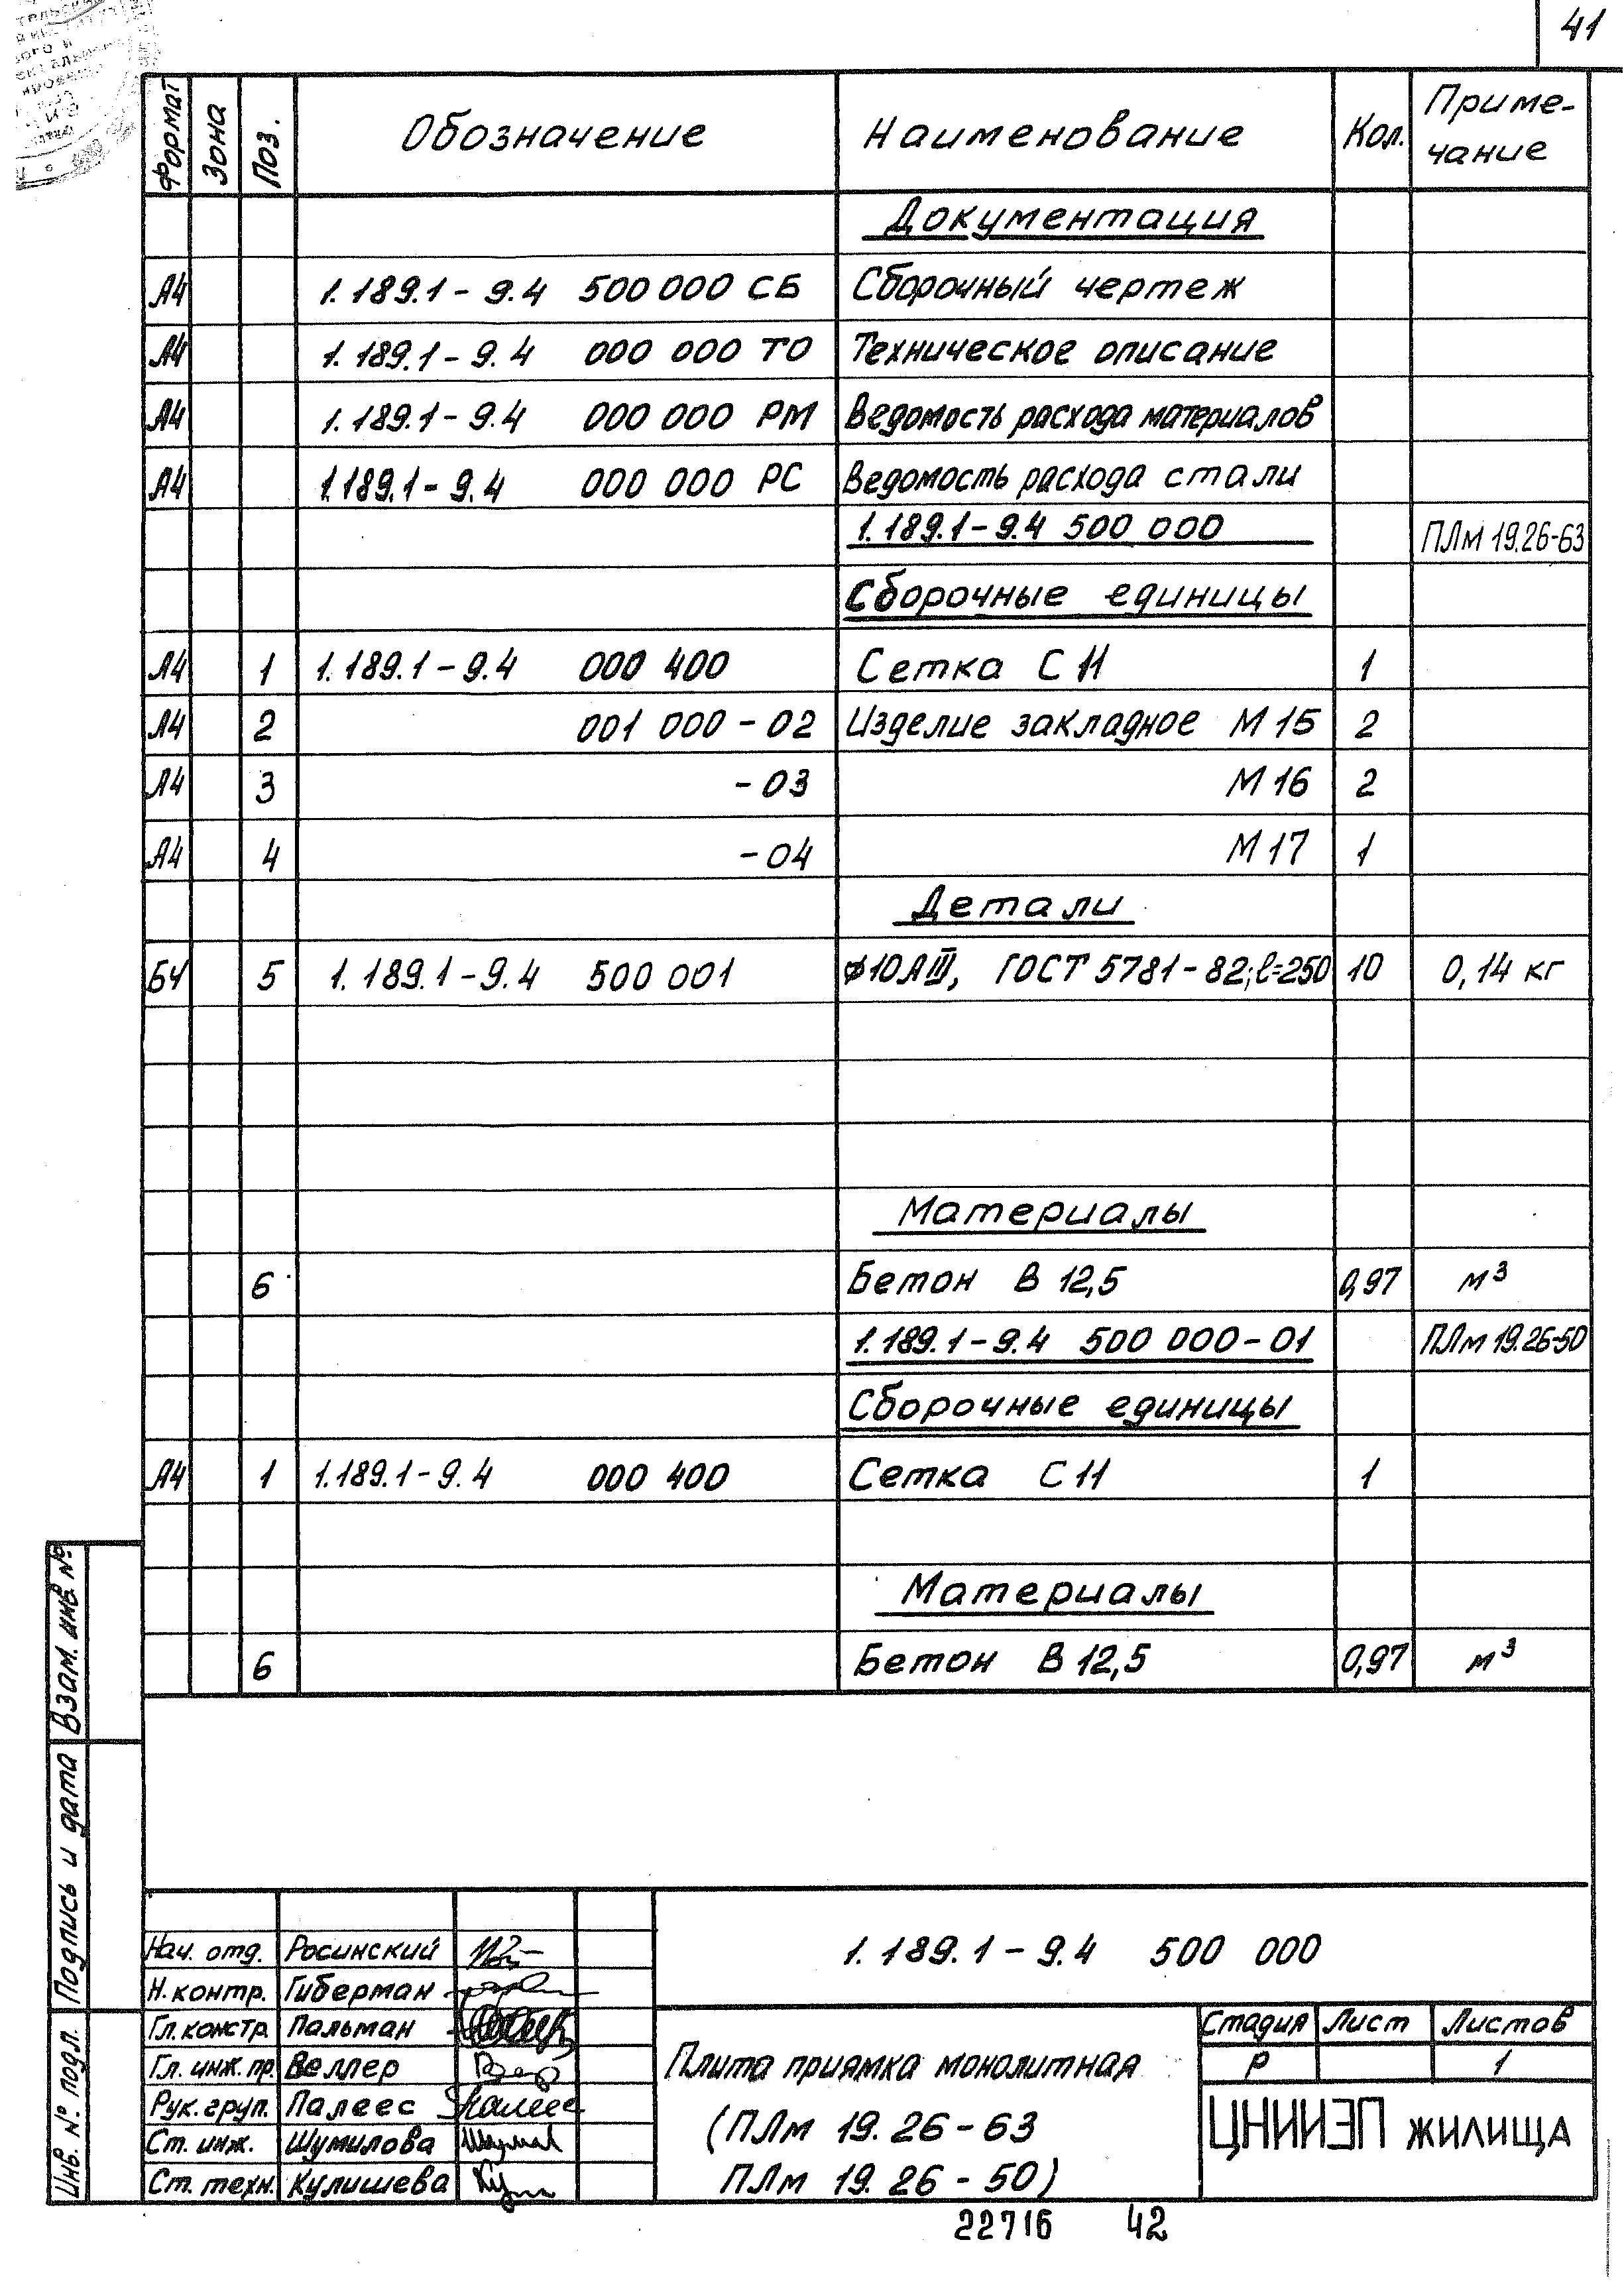 41
Формат Зона Поз. Обозначение Наименование Кол. Приме-
чание
Документация
А4 1.189.1-9.4 500 000 СБ Сборочный чертеж
А4 1.189.1-9.4 000 000 ТО Техническое описание
А4 1.189.1-9.4 000 000 РМ Ведомость расхода материалов
А4 1.189.1-9.4 000 000 РС Ведомость расхода стали
1.189.1-9.4 500 000 ПЛм 19.26-63
Сборочные единицы
А4 1 1.189.1-9.4 000 400 Сетка С 11 1
А4 2 001 000-02 Изделие закладное М 15 2
А4 3 -03 М 16 2
А4 4 -04 М 17 1
Детали
БЧ 5 1.189.1-9.4 500 001 ⌀10АIII, ГОСТ 5781-82; ℓ=250 10 0,14 кг
Материалы
6 Бетон В 12,5 0,97 м³
1.189.1-9.4 500 000-01 ПЛм 19.26-50
Сборочные единицы
А4 1 1.189.1-9.4 000 400 Сетка С 11 1
Материалы
6 Бетон В 12,5 0,97 м³
Взам. инв. №
Подпись и дата
Инв. № подл.
Нач. отд. Росинский
Н. контр. Гиберман
Гл. констр. Пальман
Гл. инж. пр. Веллер
Рук. груп. Палеес
Ст. инж. Шумилова
Ст. техн. Кулишева
1.189.1-9.4 500 000
Плита приямка монолитная
(ПЛм 19.26-63
ПЛм 19.26-50)
Стадия Лист Листов
Р 1
ЦНИИЭП жилища
22716 42